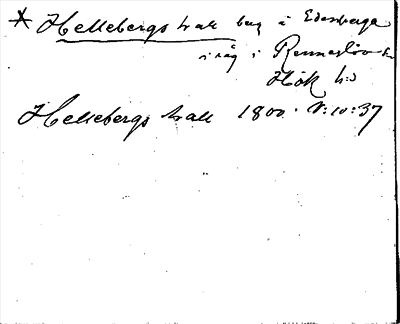 * Hellebergs hall berg å Edenberga
i råg i Renneslövs sn
Hök hd
Hellebergs hall 1800. N:10:37